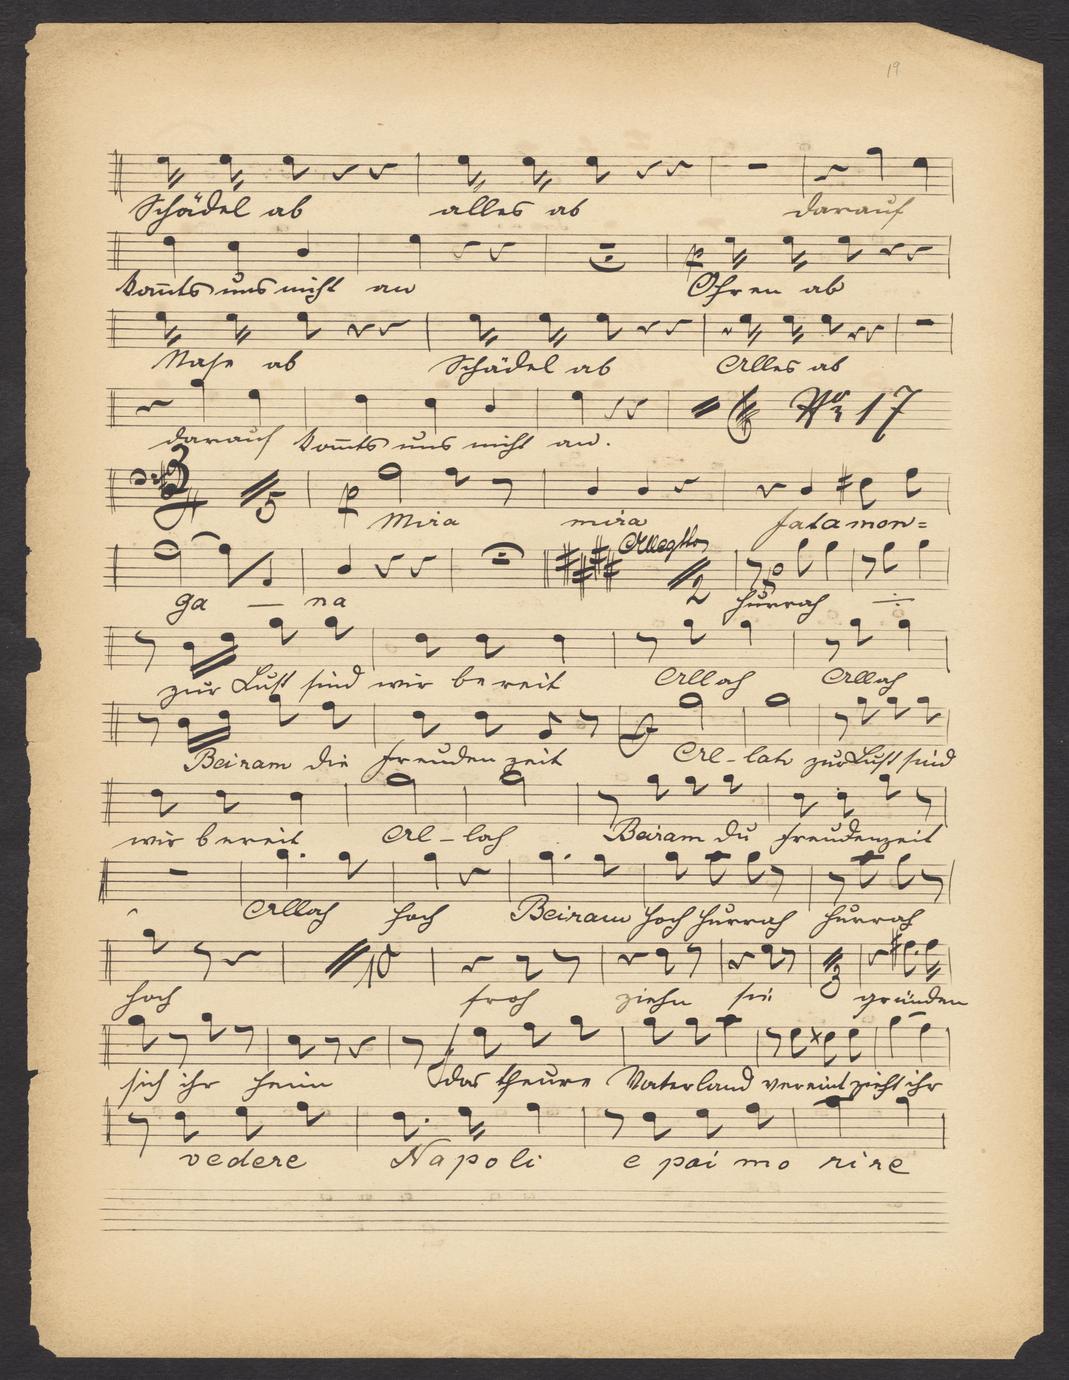 19
Schädel ab alles ab darauf
kom̄ts uns nicht an Ohren ab
p
Nase ab Schädel ab Alles ab
No 17
darauf kom̄ts uns nicht an.
3 5 p
Mira mira fata mon=
Allegtto
2
ga — na hurrah ÷
zur Lust sind wir bereit Allah Allah
f
Beiram die freuden zeit Al-lah zur Lust sind
wir bereit Al-lah Beiram du freudenzeit
Allah hoch Beiram hoch hurrah hurrah
10 3
hoch froh ziehn sie gründen
f
sich ihr heim das theure Vaterland vereint zieht ihr
vedere Napoli e poi mo rire